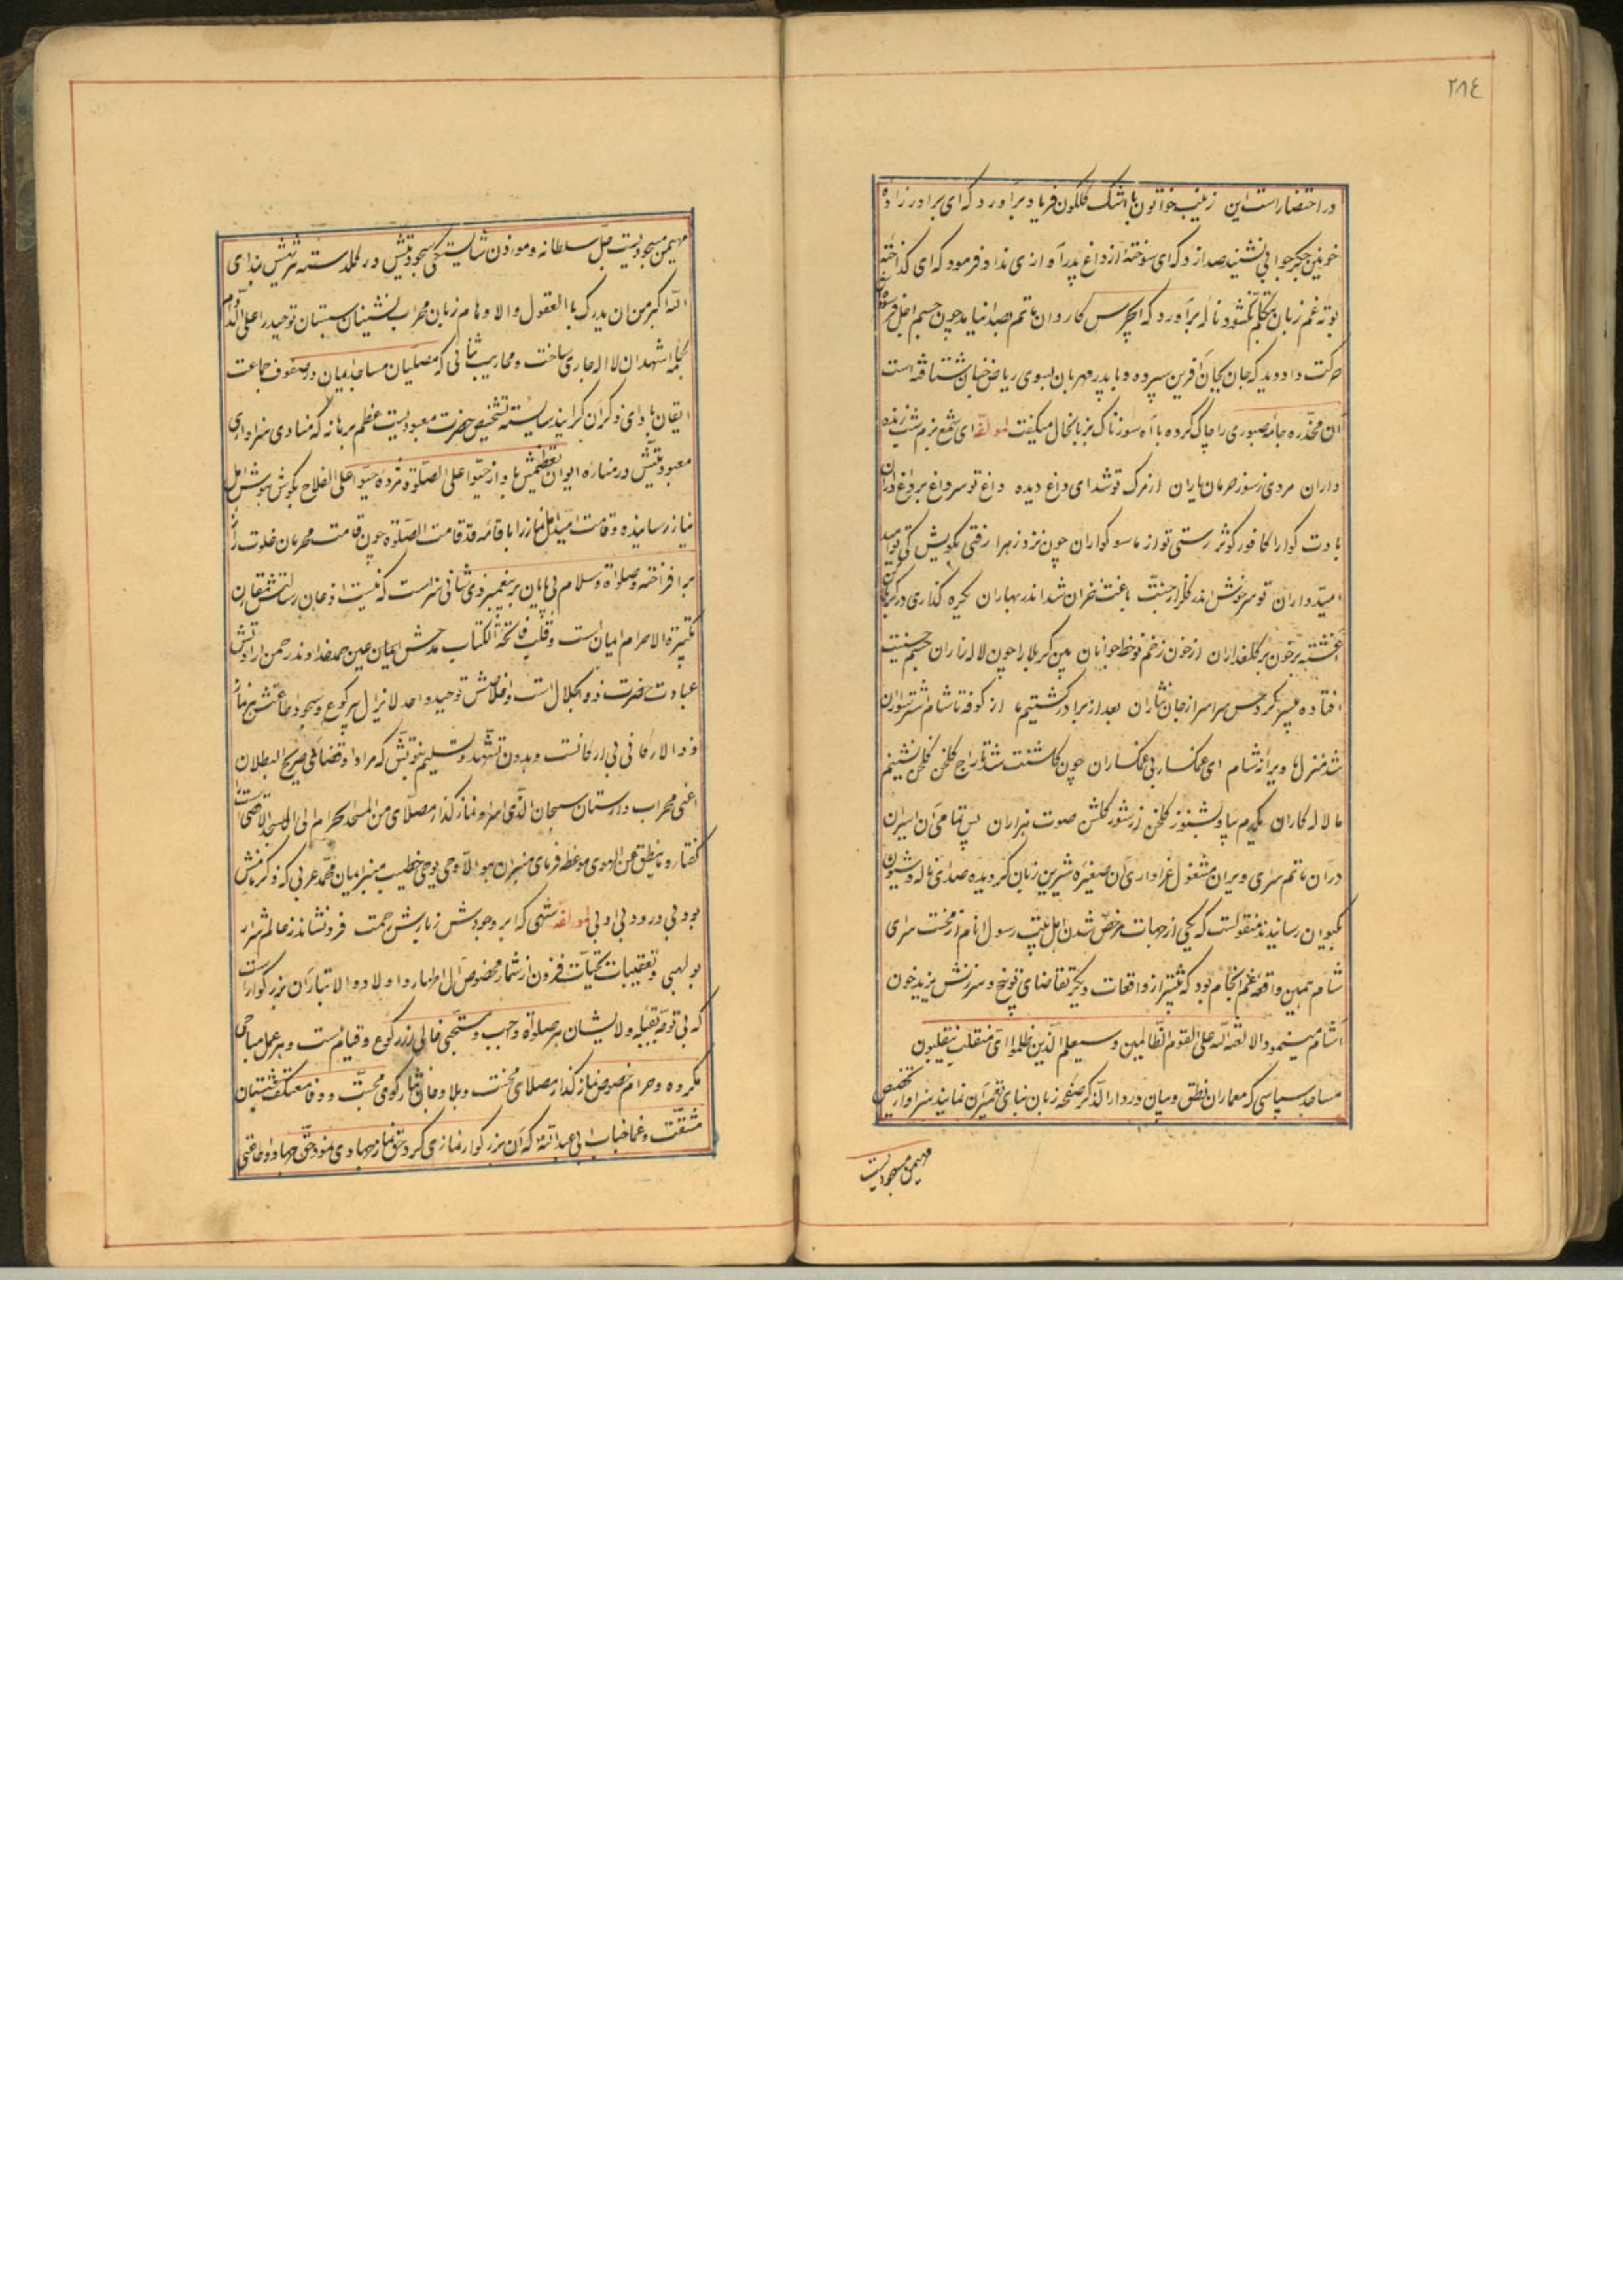 ٢٨٤
در احتضار است این زینب خاتون با اشک گلگون فریاد برآورد که ای برادر زاده
خونین جگر جوابی نشنید صدا زد که ای سوخته از داغ پدر آوازی نداد فرمود که ای گداخته
بوته غم زبان بتکلم نگشود ناله برآورد که ای جرس کاروان ماتم صدا نیامد چون جسم
حرکت داد دید که جان بجان آفرین سپرده و با پدر مهربان بسوی ریاض جنان شتافته است
آن مخدره جامه صبوری را چاک کرده با آه سوزناک بزبانحال میگفت لمولفه ای شمع بزم شب زنده
داران مردی ز سوز حرمان یاران از مرگ تو شد ای داغ دیده داغ تو سر داغ بر داغ داران
بادت گوارا کافور کوثر رستی تو از ما سوگواران چون نزد زهرا رفتی بگویش کی
امیدواران تو سرخوش اندر گلزار جنت باغت خزان شد اندر بهاران یکره گذاری در کربلا کن
آغشته در خون بر گلعذاران از خون زخم نوخط جوانان بین کربلا را چون لاله زاران جسم
افتاده سراسر از جان نثاران بعد از برادر گشتیم ما از کوفه تا شام اشتر سواران
شد منزل ما ویرانه شام ای غمگسار بی غمگساران چون گلشنت شد تاراج گلخن گلخن نشینم
ما لاله کاران یکدم بیا و بشنو ز گلخن از شور گلشن صوت هزاران پس تمامی آن اسیران
در آن ماتم سرای ویران مشغول عزاداری آن صغیره شیرین زبان گردیده صدای ناله و شیون
بکیوان رسانیدند منقولست که یکی از جهات مرخص شدن اهل بیت رسول انام از محنت سرای
شام همین واقعه غم انجام بود که بیشتر از واقعات دیگر تقاضای توبیخ و سرزنش یزید خون
آشام مینمود الا لعنة الله علی القوم الظالمین و سیعلم الذین ظلموا ای منقلب ینقلبون
مساجد سپاسی که معماران نطق و بیان در دار الذکر صفحه زبان بنای تعمیرآن نمایند سزاوار تخصیص
مهیمن مسجودیست
مهیمن مسجودیست جل سلطانه و موذن شایستگی مسجودیتش در گلدسته بندای
الله اکبر من ان یدرک بالعقول والاوهام زبان محراب نشینان شبستان توحید را علی الدوام
بکلمه اشهد ان لا اله جاری ساخت و محاریب ثنائی که مصلیان مساجد ایمان در صفوف جماعت
ایقان شایسته تخصیص حضرت معبودیست عظم برهانه که منادی سزاواری
معبودیتش در مناره ایوان تعظیمش باواز حیوا علی الصلوة مژده حیوا علی الفلاح بگوش هوش اهل
نیاز رسانیده و قامت اهل نماز را باقامه قد قامت الصلوة چون قامت محرمان خلوت راز
برافراخته و صلواة و سلام بی پایان بر پیغمبر ذی شانی سزاست که نیت اذعان رسالتش مقارن
تکبیرة الاحرام ایمان است و قلب فاتحة الکتاب مدحش عین حمد خداوند رحمن ارادتش
عبادت حضرت ذو الجلال است و اخلاصش توحید واحد لا یزال بی رکوع و سجود اطاعتش هر نماز
ذو الارکانی بی ارکانست و بدون تشهد و تسلیم نبوتش که مراد او قضاء صریح البطلان
اعنی محراب داستان سبحان الذی اسرا و نماز گذار مصلای من المسجد الحرام الی المسجد الاقصی
گفتار و ما ینطق عن الهوی موعظه فرمای منبر ان هو الا وحی یوحی خطیب منبر ایمان محمد عربی که ذکر
بود بی درود بی ادبی لمولفه شهی که ابر وجودش ز بارش رحمت فرو نشاند ز عالم شرار
بولهبی و تعقیبات تحیات فزون از شمار مخصوص آل اطهار و اولاد والاتبار آن بزرگوار است
که بی توجه بقبله ولایشان هر صلواة واجب و مستحبی خالی از رکوع و قیامست و هر عمل مباحی
مکروه و حرام خصوص نماز گذار مصلای محنت و بلا و خانه محبت و وفا معتکف شبستان
مشقت و غما جناب ابی عبدالله که آن بزرگوار نمازی کرد و حق نماز جهادی نمود حق جهاد و اطاعتی